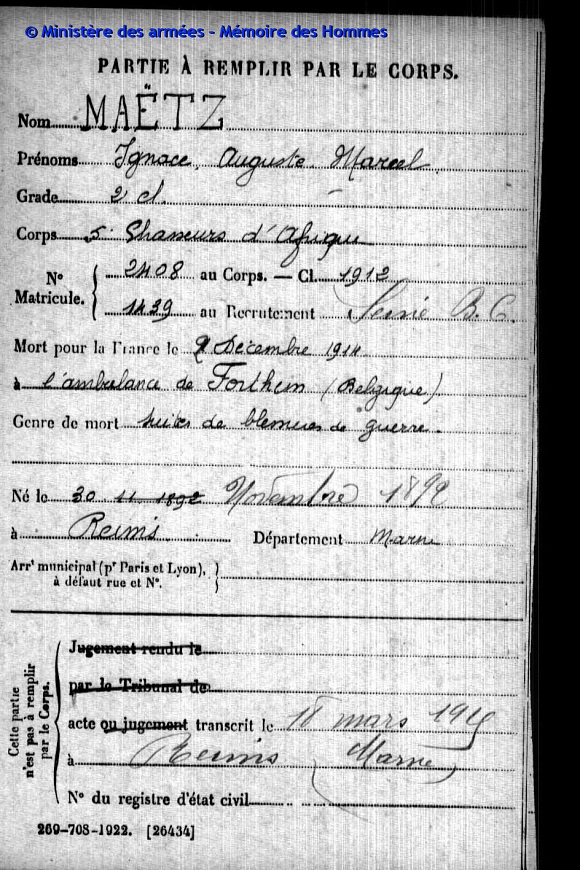 © Ministère des armées - Mémoire des Hommes
PARTIE À REMPLIR PAR LE CORPS.
Nom MAËTZ
Prénoms Ignace Auguste Marcel
Grade 2 cl.
Corps 5e Chasseurs d'Afrique
N° Matricule. { 2408 au Corps. — Cl. 1912
1439 au Recrutement Seine B. C.
Mort pour la France le 9 Décembre 1914
à l'ambulance de Forthem (Belgique)
Genre de mort suites de blessures de guerre
Né le 30 11 1892 Novembre 1892
à Reims Département Marne
Arrt municipal (pr Paris et Lyon),
à défaut rue et N°.
Cette partie n'est pas à remplir par le Corps.
Jugement rendu le
par le Tribunal de
acte ou jugement transcrit le 18 mars 1915
à Reims (Marne)
N° du registre d'état civil
269-708-1922. [26434]